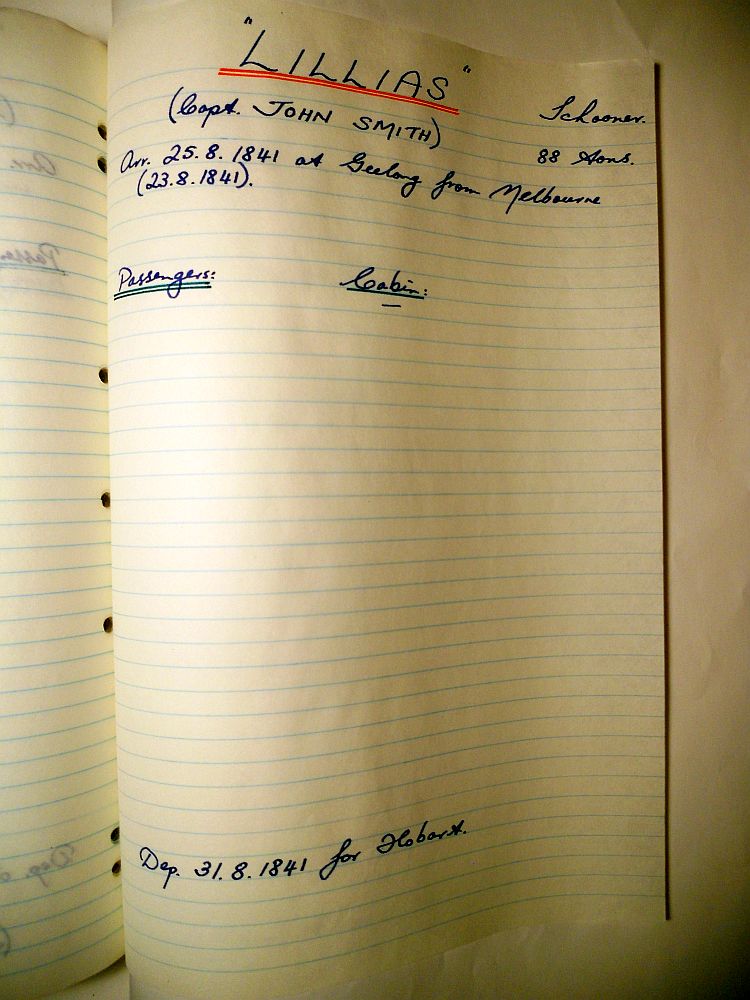 "LILLIAS"
(Capt. JOHN SMITH) Schooner.
Arr. 25.8.1841 at Geelong from Melbourne 88 tons.
(23.8.1841).
Passengers: Cabin:
—
Dep. 31.8.1841 for Hobart.